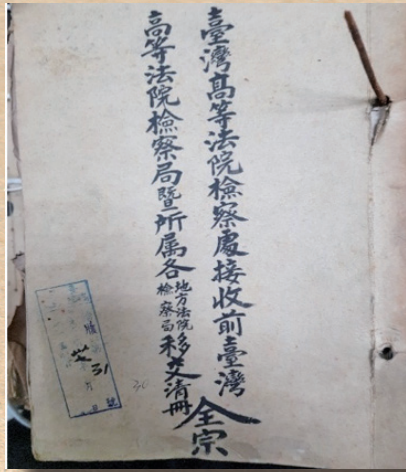 臺灣高等法院檢察處接收前臺灣
高等法院檢察局暨所属各地方法院檢察局移交清冊
全宗
31